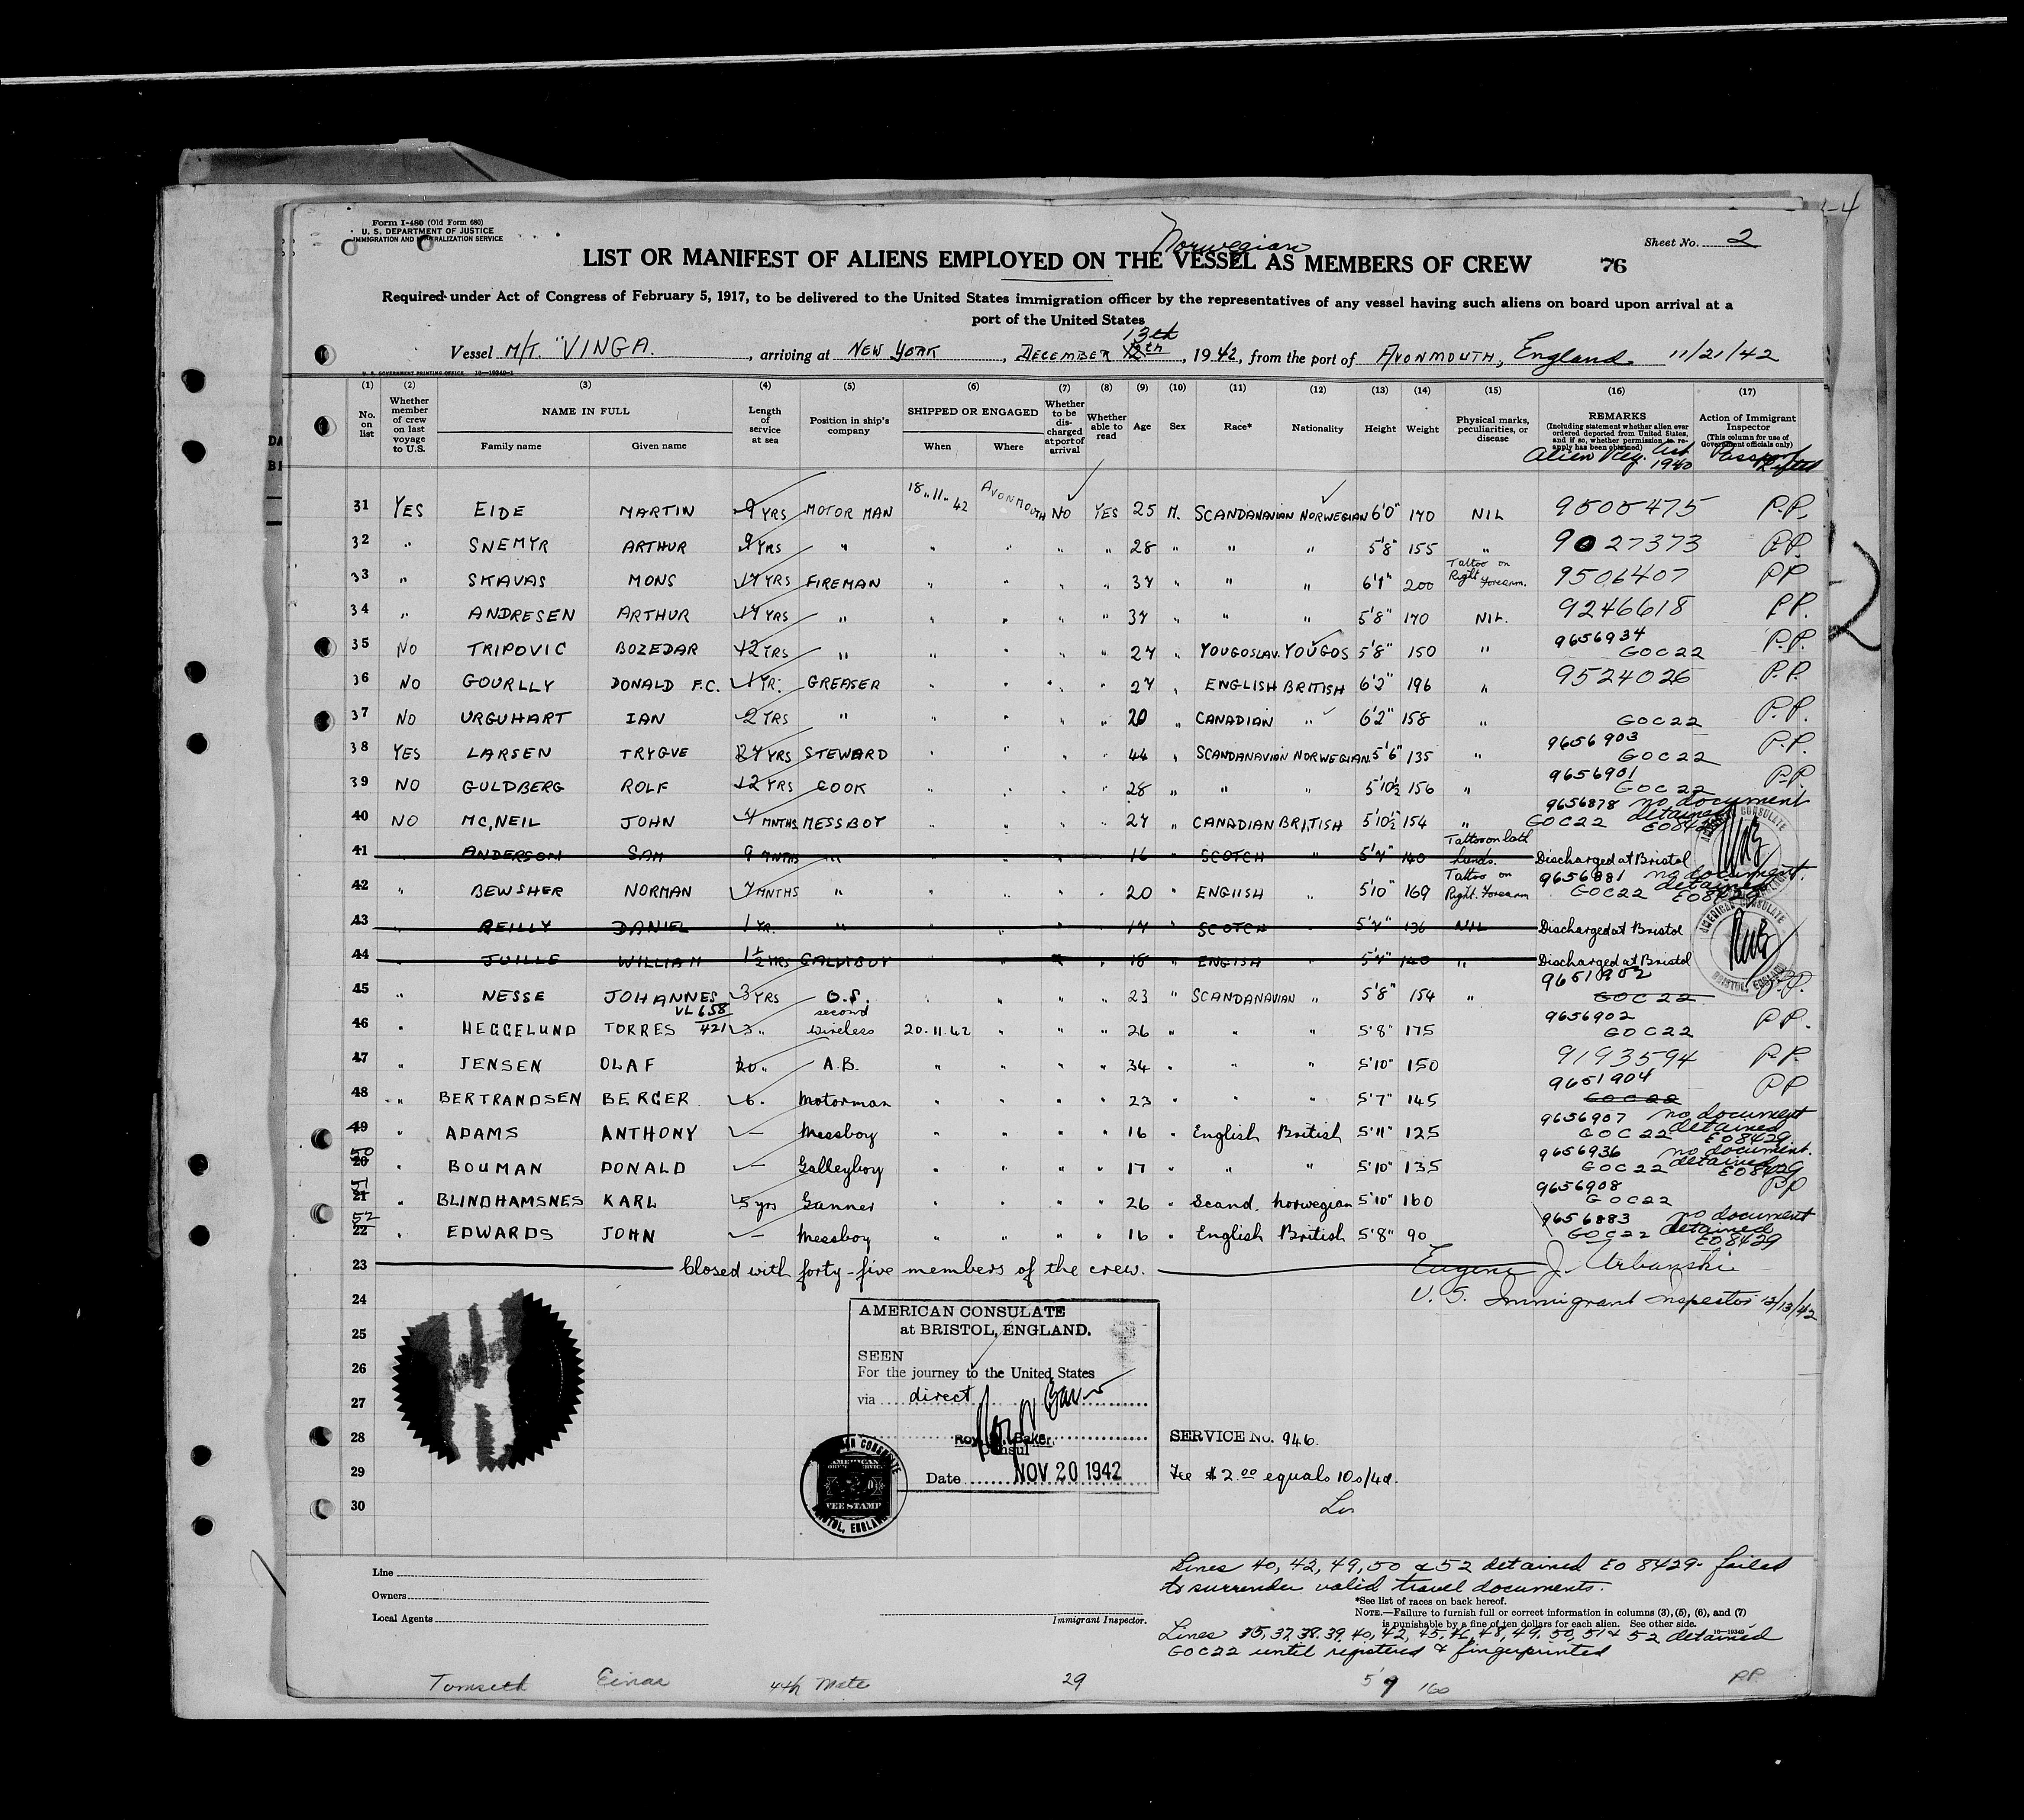 Form I-480 (Old Form 680)
U. S. DEPARTMENT OF JUSTICE
IMMIGRATION AND NATURALIZATION SERVICE
Sheet No. 2
Norwegian
LIST OR MANIFEST OF ALIENS EMPLOYED ON THE VESSEL AS MEMBERS OF CREW 76
Required under Act of Congress of February 5, 1917, to be delivered to the United States immigration officer by the representatives of any vessel having such aliens on board upon arrival at a
port of the United States
13th
Vessel M/T. "VINGA. , arriving at NEW YORK , DECEMBER 12th , 1942, from the port of AVONMOUTH, England. 11/21/42
U. S. GOVERNMENT PRINTING OFFICE 16—19349-1
(1) (2) (3) (4) (5) (6) (7) (8) (9) (10) (11) (12) (13) (14) (15) (16) (17)
No. on list
Whether member of crew on last voyage to U.S.
NAME IN FULL
Family name Given name
Length of service at sea
Position in ship's company
SHIPPED OR ENGAGED
When Where
Whether to be discharged at port of arrival
Whether able to read
Age
Sex
Race*
Nationality
Height
Weight
Physical marks, peculiarities, or disease
REMARKS
(Including statement whether alien ever ordered deported from United States, and if so, whether permission to re-apply has been obtained)
Alien Reg. Act 1940
Action of Immigrant Inspector
(This column for use of Government officials only)
31 YES EIDE MARTIN 9 YRS MOTOR MAN 18.11.42 AVONMOUTH NO YES 25 M. SCANDANAVIAN NORWEGIAN 6'0" 170 NIL 9505475 P.P.
32 " SNEMYR ARTHUR 9 YRS " " " " " 28 " " " 5'8" 155 " 9027373 P.P.
33 " SKAVAS MONS 17 YRS FIREMAN " " " " 37 " " " 6'1" 200 Tattoo on Right forearm. 9506407 PP
34 " ANDRESEN ARTHUR 17 YRS " " " " " 37 " " " 5'8" 170 NIL. 9246618 P.P.
35 NO TRIPOVIC BOZEDAR 12 YRS " " " " " 27 " YOUGOSLAV. YOUGOS 5'8" 150 " 9656934 GOC22 P.P.
36 NO GOURLLY DONALD F.C. 1 YR. GREASER " " " " 27 " ENGLISH BRITISH 6'2" 196 " 9524026 P.P.
37 NO URGUHART IAN 2 YRS " " " " " 20 " CANADIAN " 6'2" 158 " GOC22 P.P.
38 YES LARSEN TRYGVE 27 YRS STEWARD " " " " 44 " SCANDANAVIAN NORWEGIAN 5'6" 135 " 9656903 GOC22 P.P.
39 NO GULDBERG ROLF 12 YRS COOK " " " " 28 " " " 5'10½ 156 " 9656901 GOC22 P.P.
40 NO MC,NEIL JOHN 4 MNTHS MESSBOY " " " " 27 " CANADIAN BRITISH 5'10½" 154 " 9656878 no document GOC22 detained EO8429
41 " ANDERSON SAM 9 MNTHS " " " " " 16 " SCOTCH " 5'7" 140 Tattoo on both hands. Discharged at Bristol
42 " BEWSHER NORMAN 7 MNTHS " " " " " 20 " ENGLISH " 5'10" 169 Tattoo on Right forearm 9656881 no document. GOC22 detained EO8429
43 REILLY DANIEL 1 YR. " " 17 SCOTCH " 5'7" 136 NIL Discharged at Bristol
44 JUILLE WILLIAM 1½ YRS GALLYBOY " " 18 ENGISH " 5'7" 140 " Discharged at Bristol
45 " NESSE JOHANNES 3 YRS O.S. " " " " 23 " SCANDANAVIAN " 5'8" 154 " 9651902 GOC 22 P.P.
VL 658
421
46 " HEGGELUND TORRES 3 " second wireless 20.11.42 " " " 26 " " " 5'8" 175 9656902 GOC22 P.P.
47 " JENSEN OLAF 20 " A.B. " " " " 34 " " " 5'10" 150 9193594 P.P.
48 " BERTRANDSEN BERGER 6 " Motorman " " " " 23 " " " 5'7" 145 9651904 GOC 22 PP
49 " ADAMS ANTHONY — Messboy " " " " 16 " English British 5'11" 125 9656907 no document GOC 22 detained EO8429
50 20 " BOUMAN DONALD — Galleyboy " " " " 17 " " " 5'10" 135 9656936 no document. GOC 22 detained EO8429
51 21 " BLINDHAMSNES KARL 5 yrs Gunner " " " " 26 " Scand. Norwegian 5'10" 160 9656908 GOC22 PP
52 22 " EDWARDS JOHN — Messboy " " " " 16 " English British 5'8" 90 9656883 no document GOC22 detained EO8429
23 Closed with forty-five members of the crew. Eugene J. Urbanski
24 U. S. Immigrant Inspector 12/13/42
25
26
27
28
29
30
AMERICAN CONSULATE
at BRISTOL, ENGLAND.
SEEN
For the journey to the United States
via direct
Consul
Date NOV 20 1942
SERVICE No. 946.
Fee $2.00 equals 10s/4d.
AMERICAN CONSULATE
BRISTOL, ENGLAND
FEE STAMP
Line
Owners
Local Agents
Immigrant Inspector.
Lines 40, 42, 49, 50 & 52 detained EO 8429- failed
to surrender valid travel documents.
*See list of races on back hereof.
NOTE.—Failure to furnish full or correct information in columns (3), (5), (6), and (7)
is punishable by a fine of ten dollars for each alien. See other side. 16—19349
Lines 35, 37, 38, 39, 40, 42, 45, 46, 48, 49, 50, 51 & 52 detained
GOC22 until registered & fingerprinted
Tomseth Einar 4th Mate 29 5'9 160 P.P.